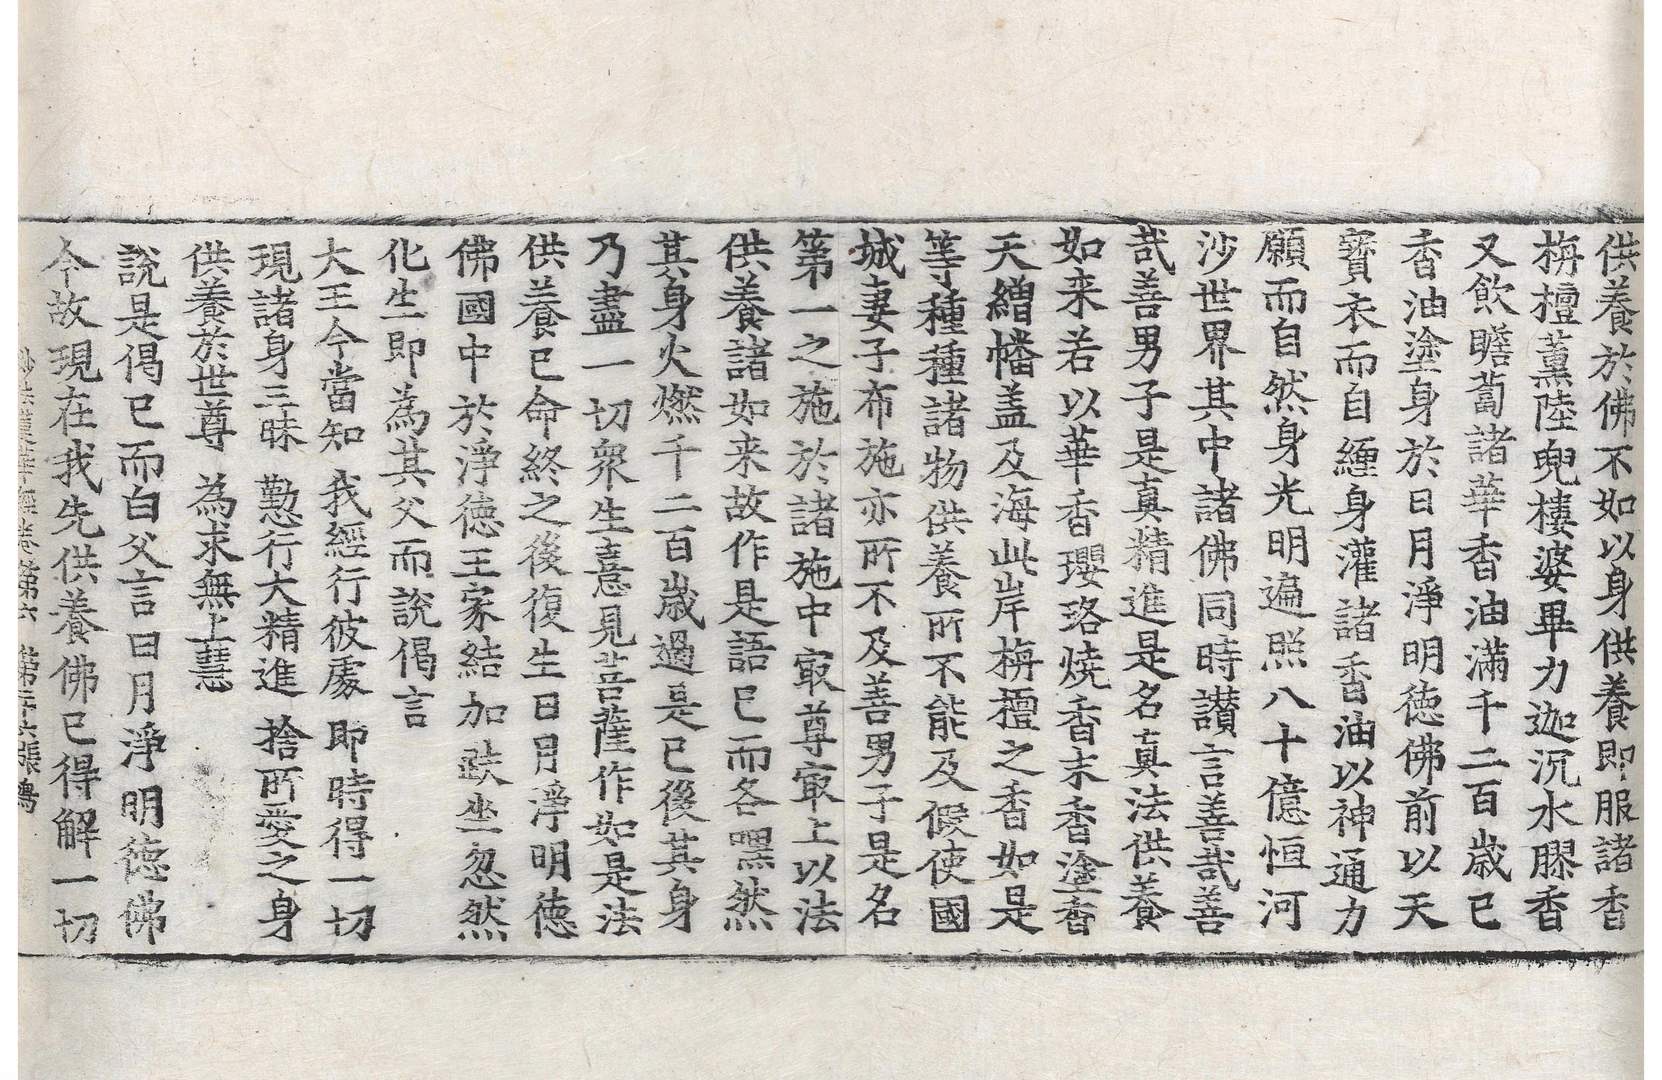 供養於佛不如以身供養即服諸香
栴檀薰陸兜樓婆畢力迦沉水膠香
又飮瞻蔔諸華香油滿千二百歲已
香油塗身於日月淨明徳佛前以天
寶衣而自纏身灌諸香油以神通力
願而自然身光明遍照八十億恒河
沙世界其中諸佛同時讃言善哉善
哉善男子是真精進是名真法供養
如来若以華香瓔珞燒香末香塗香
天繒幡盖及海此岸栴檀之香如是
等種種諸物供養所不能及假使國
城妻子布施亦所不及善男子是名
第一之施於諸施中㝡尊㝡上以法
供養諸如来故作是語已而各嘿然
其身火燃千二百歲過是已後其身
乃盡一切衆生憙見菩薩作如是法
供養已命終之後復生日月淨明徳
佛國中於淨徳王家結加趺坐忽然
化生即為其父而說偈言
大王今當知 我經行彼處 即時得一切
現諸身三昧 懃行大精進 捨所愛之身
供養於世尊 為求無上慧
說是偈已而白父言日月淨明徳佛
今故現在我先供養佛已得解一切